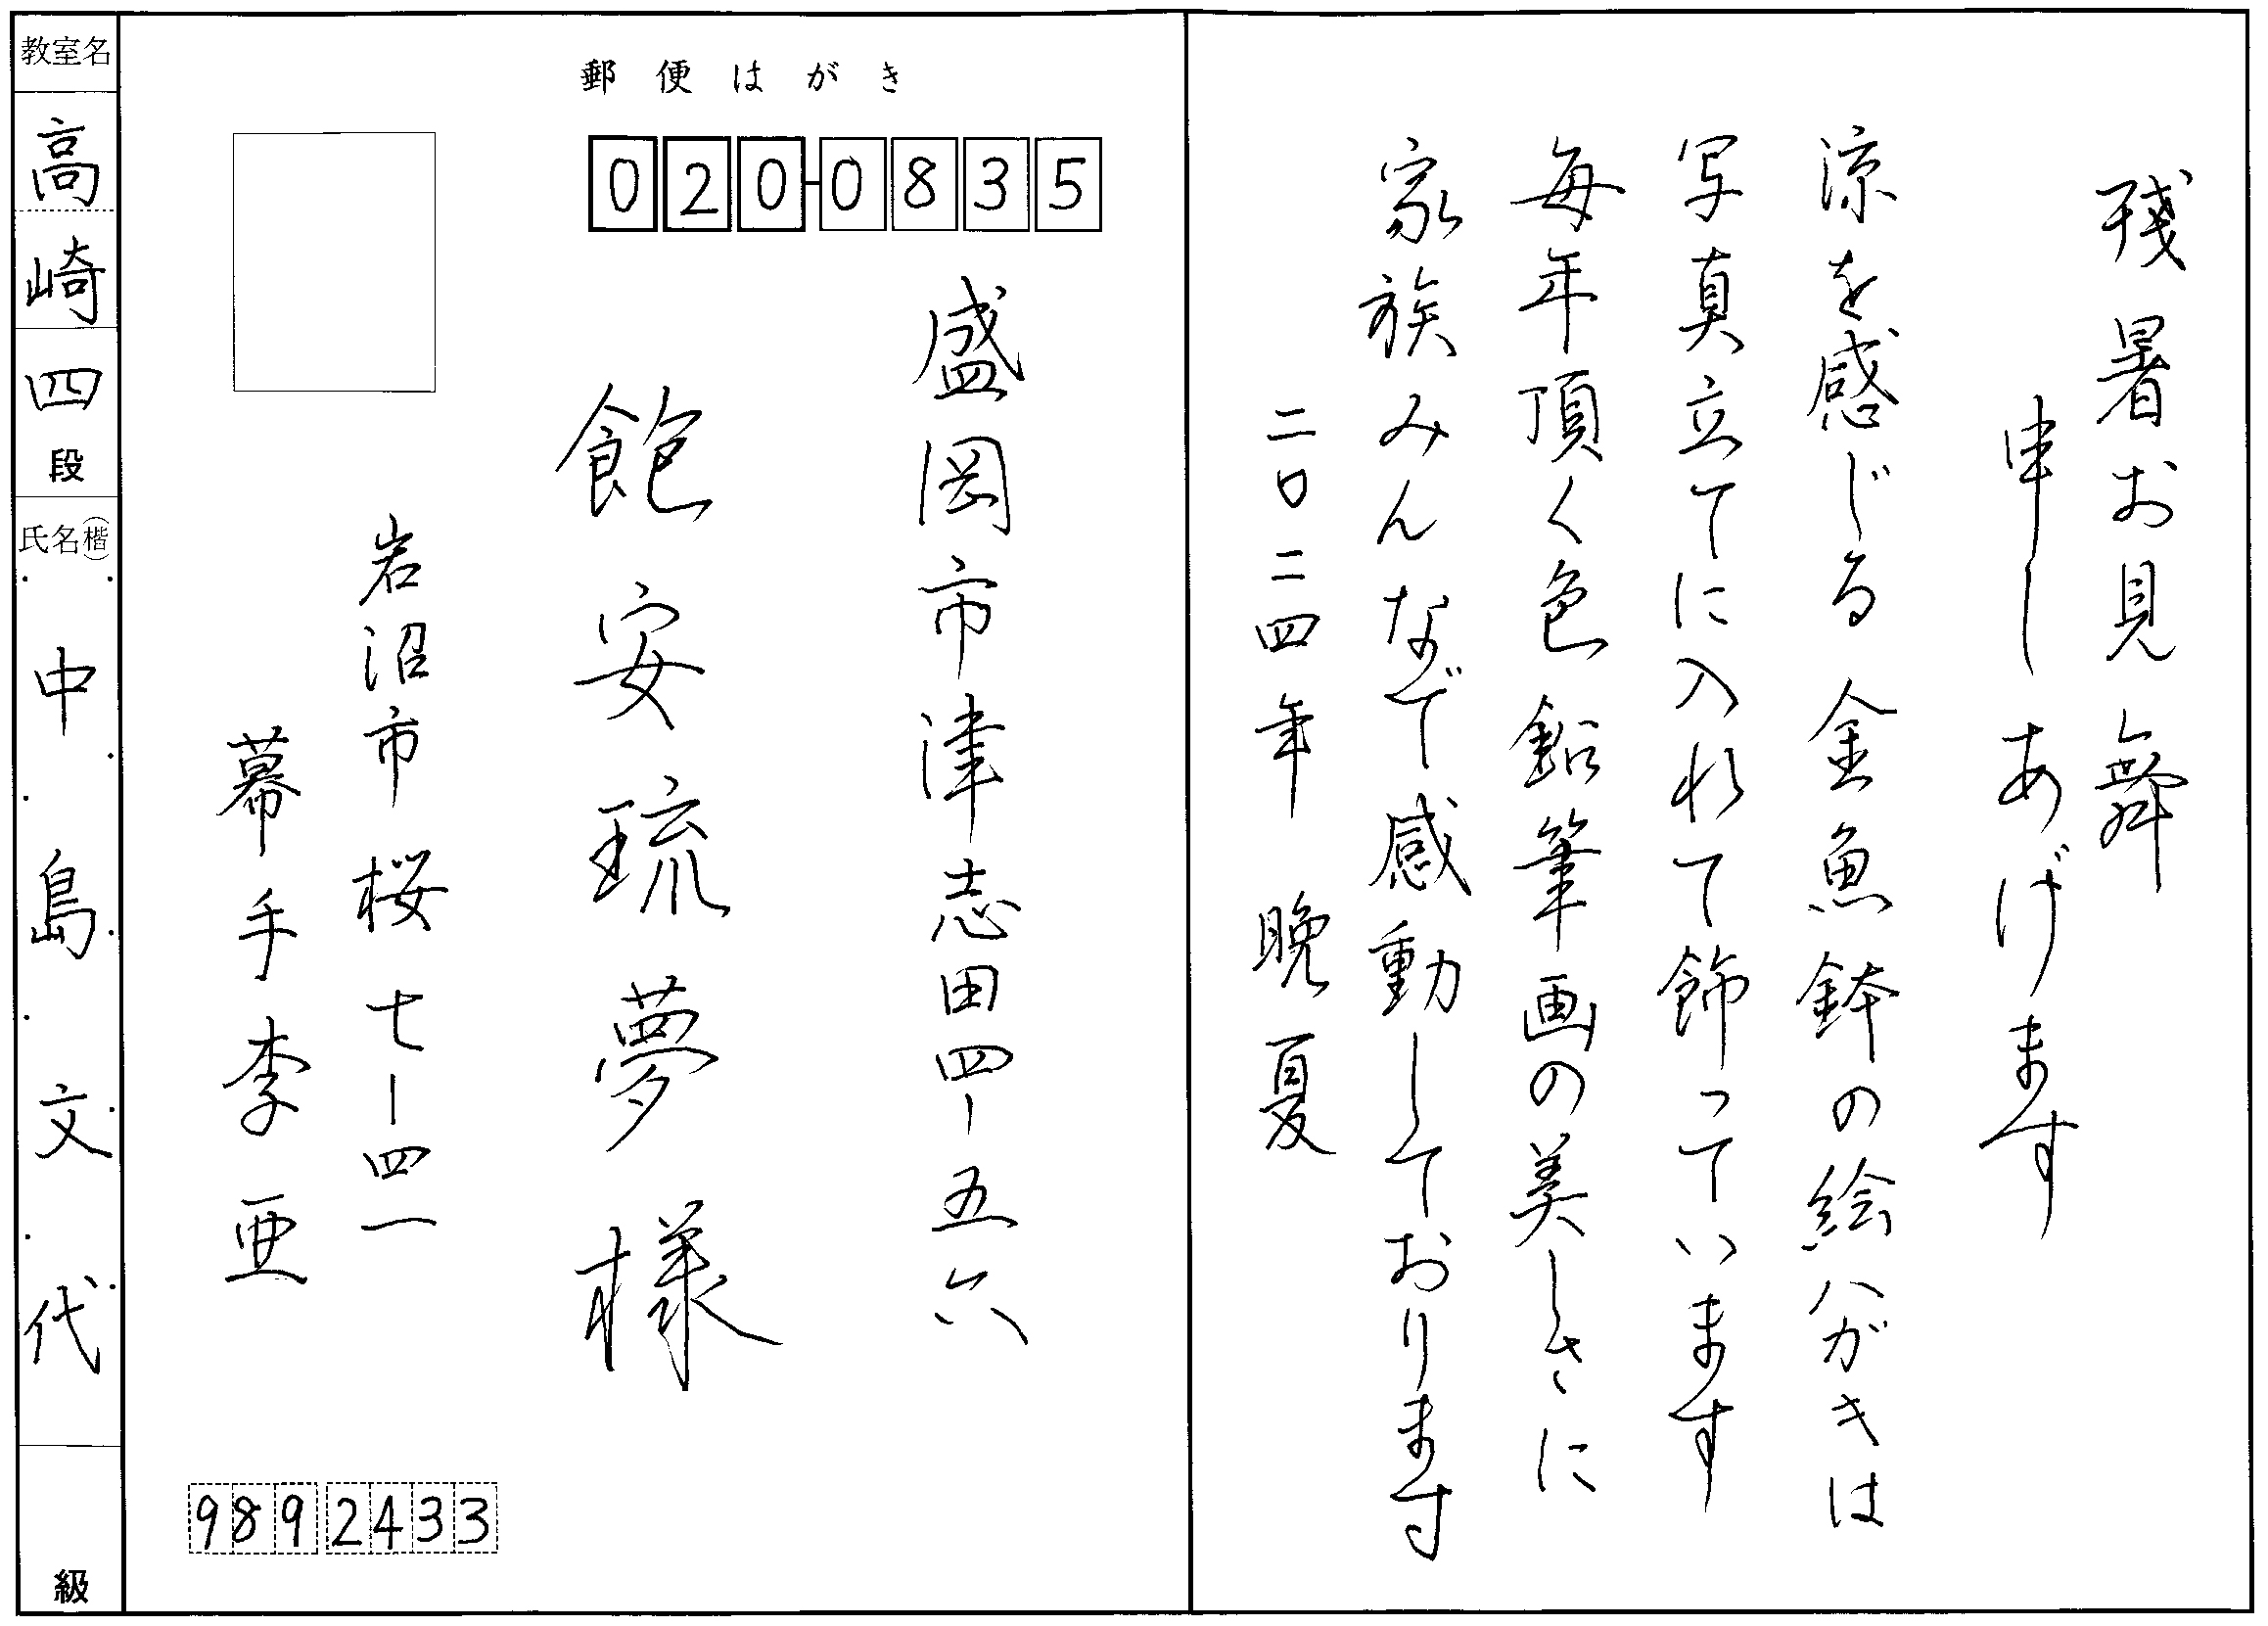 残暑お見舞
申しあげます
涼を感じる金魚鉢の絵ハがきは
写真立てに入れて飾っています
毎年頂く色鉛筆画の美しさに
家族みんなで感動しております
二〇二四年 晩夏
郵便はがき
020-0835
盛岡市津志田四ー五六
飽安琉夢様
岩沼市桜七ー四一
幕手李亜
989 2433
教室名
高崎
四段
氏名(楷)
中島文代
級